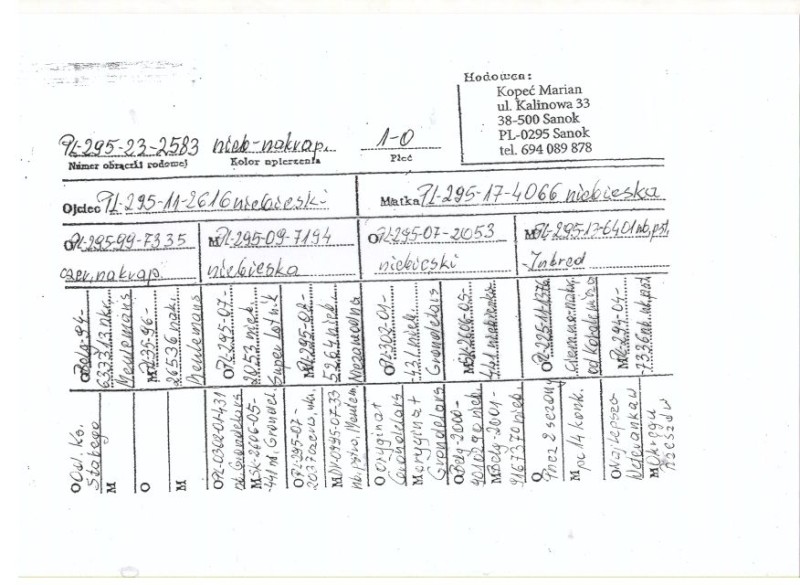 Hodowca:
Kopeć Marian
ul. Kalinowa 33
38-500 Sanok
PL-0295 Sanok
tel. 694 089 878
PL-295-23-2583 nieb-nakrap. 1-0
Numer obrączki rodowej Kolor upierzenia Płeć
Ojciec PL-295-11-2616 niebieski
Matka PL-295-17-4066 niebieska
O PL-295-99-7335
czer. nakrap.
M PL-295-09-7194
niebieska
O PL-295-07-2053
niebieski
M PL-295-17-6401 nb. pst.
Inbred
O Belg-94-
6373713 nkr.
Meulemans
M PL-235-96-
20536 nak.
Meulemans
O PL-295-07-
2053 nieb.
Super Lotnik
M PL-295-02-
5264 nieb.
Niezawodna
O PL-302-01-
431 nieb.
Grondelars
M SK-2606-05-
441 niebieska
O PL-225-11-1376
Ciemno-nakr.
od Kobelewicza
M PL-294-04-
7326 nb. pst.
O Od. Ks.
Stabego
M
O
M
O PL-0302-01-431
Grondelars
M SK-2606-05-
441 nb. Grondel.
O PL-295-07-
2037 czerw. nk.
M PL-0295-07-33
nb. pstra, Meulem
O oryginał
Grondelars
M oryginał
Grondelars
O Belg-2000-
4010290 nieb
M Belg-2001-
9167370 nieb
O Przez 2 sezony
M po 14 konk.
O Najlepsza
Weteranka w
M Okręgu
Rzeszów